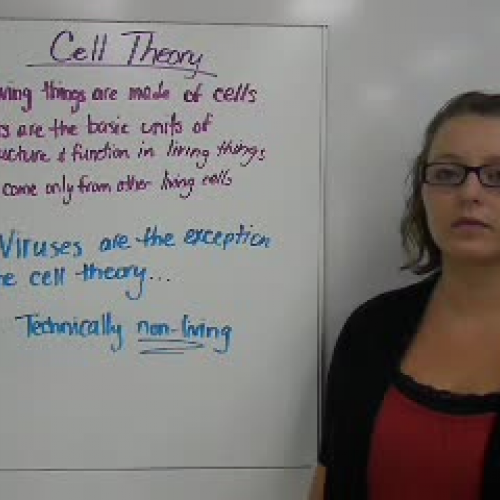 Cell Theory
things are made of cells
are the basic units of
& function in living things
come only from other living cells
Viruses are the exception
cell theory...
Technically non-living